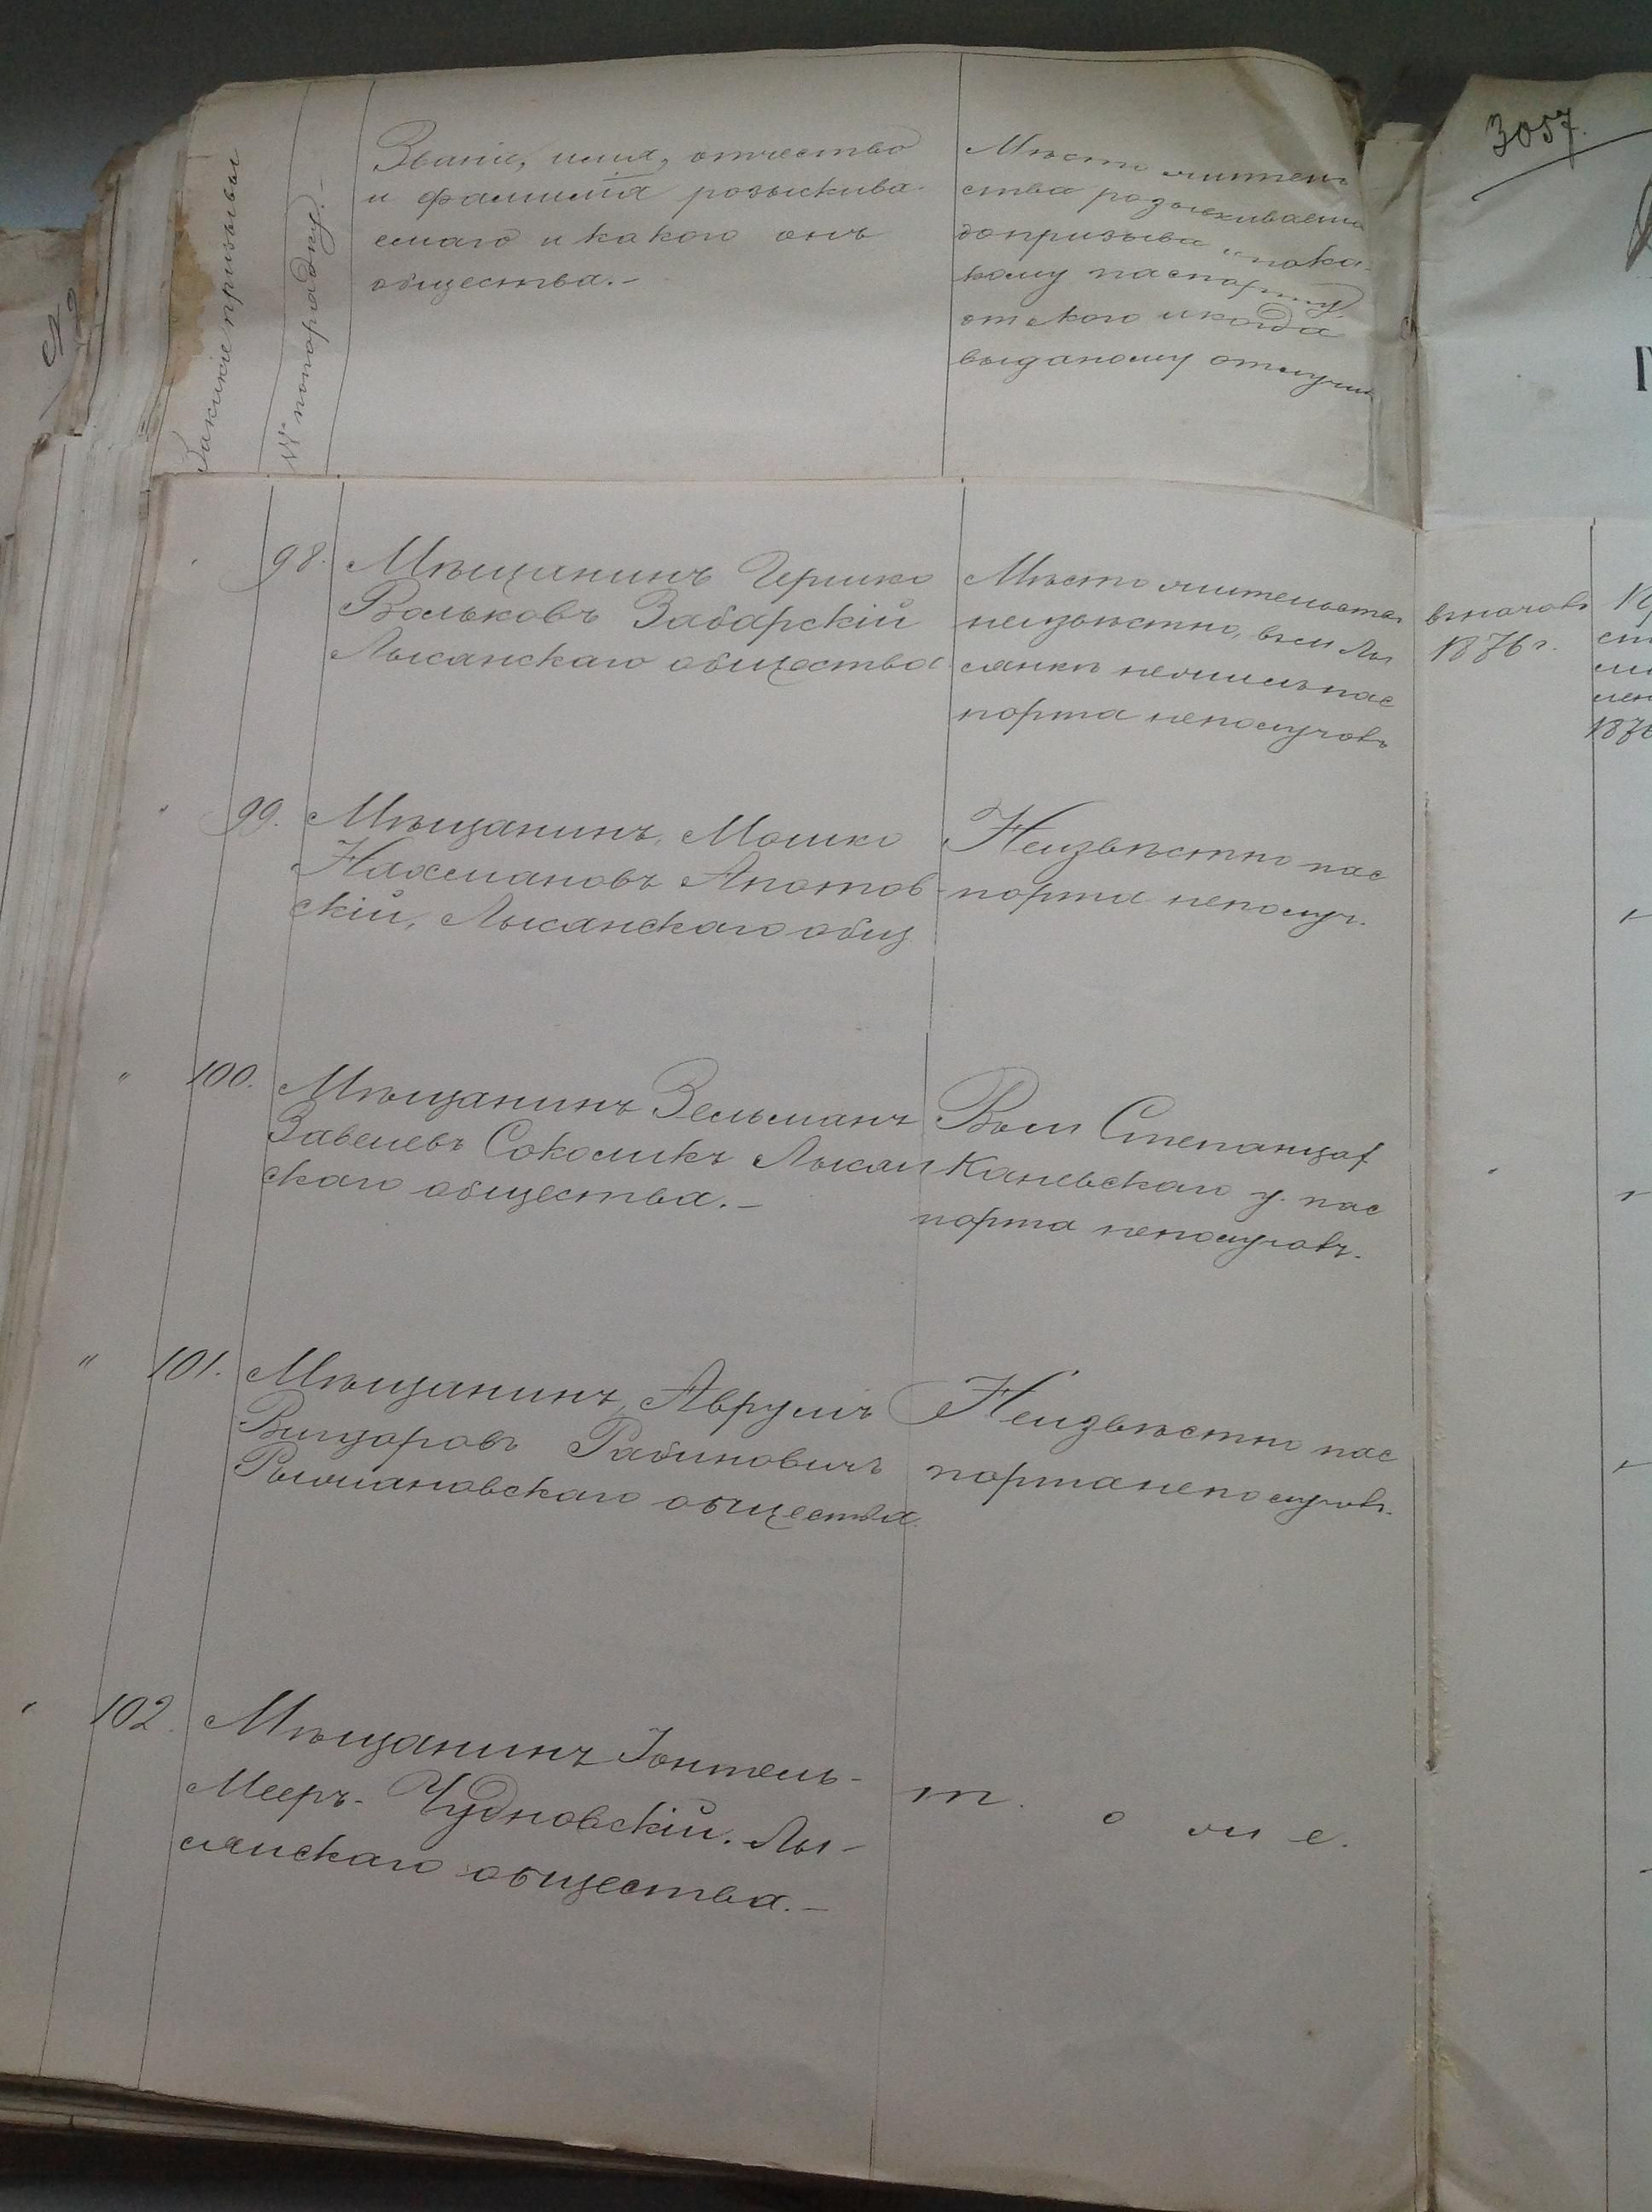 3057.
За какие призывы
№ по порядку.
Званіе, имя, отчество
и фамилія розыскива-
емаго и какого онъ
общества.-
Мѣсто жителъ
ства розыскиваема
до призыва и пока-
кому паспорту,
от кого и когда
выданому отлучил
98. Мѣщанинъ Гершко
Вольковъ Забарскій
Лысанскаго общества
Мѣсто жительства
неизвѣстно, въ м Лы
сянкѣ не жилъ пас
порта неполучовъ
1876 г.
187
99. Мѣщанинъ, Мошко
Нахмановъ Апотов-
скій, Лысанскаго общ
Неизвѣстно пас
порта неполуч.
" 100. Мѣщанинъ Зельманъ
Завелевъ Соколикъ Лысан
скаго общества.-
Въ м Степанцах
Каневскаго у. пас
порта неполучовъ.
" 101. Мѣщанинъ, Аврумъ
Рабиновичъ
общества.
Неизвѣстно пас
порта неполучовъ.
102. Мѣщанинъ Іонтель-
Мееръ- Чудновскій. Лы-
сянскаго общества.-
т. о ж е.